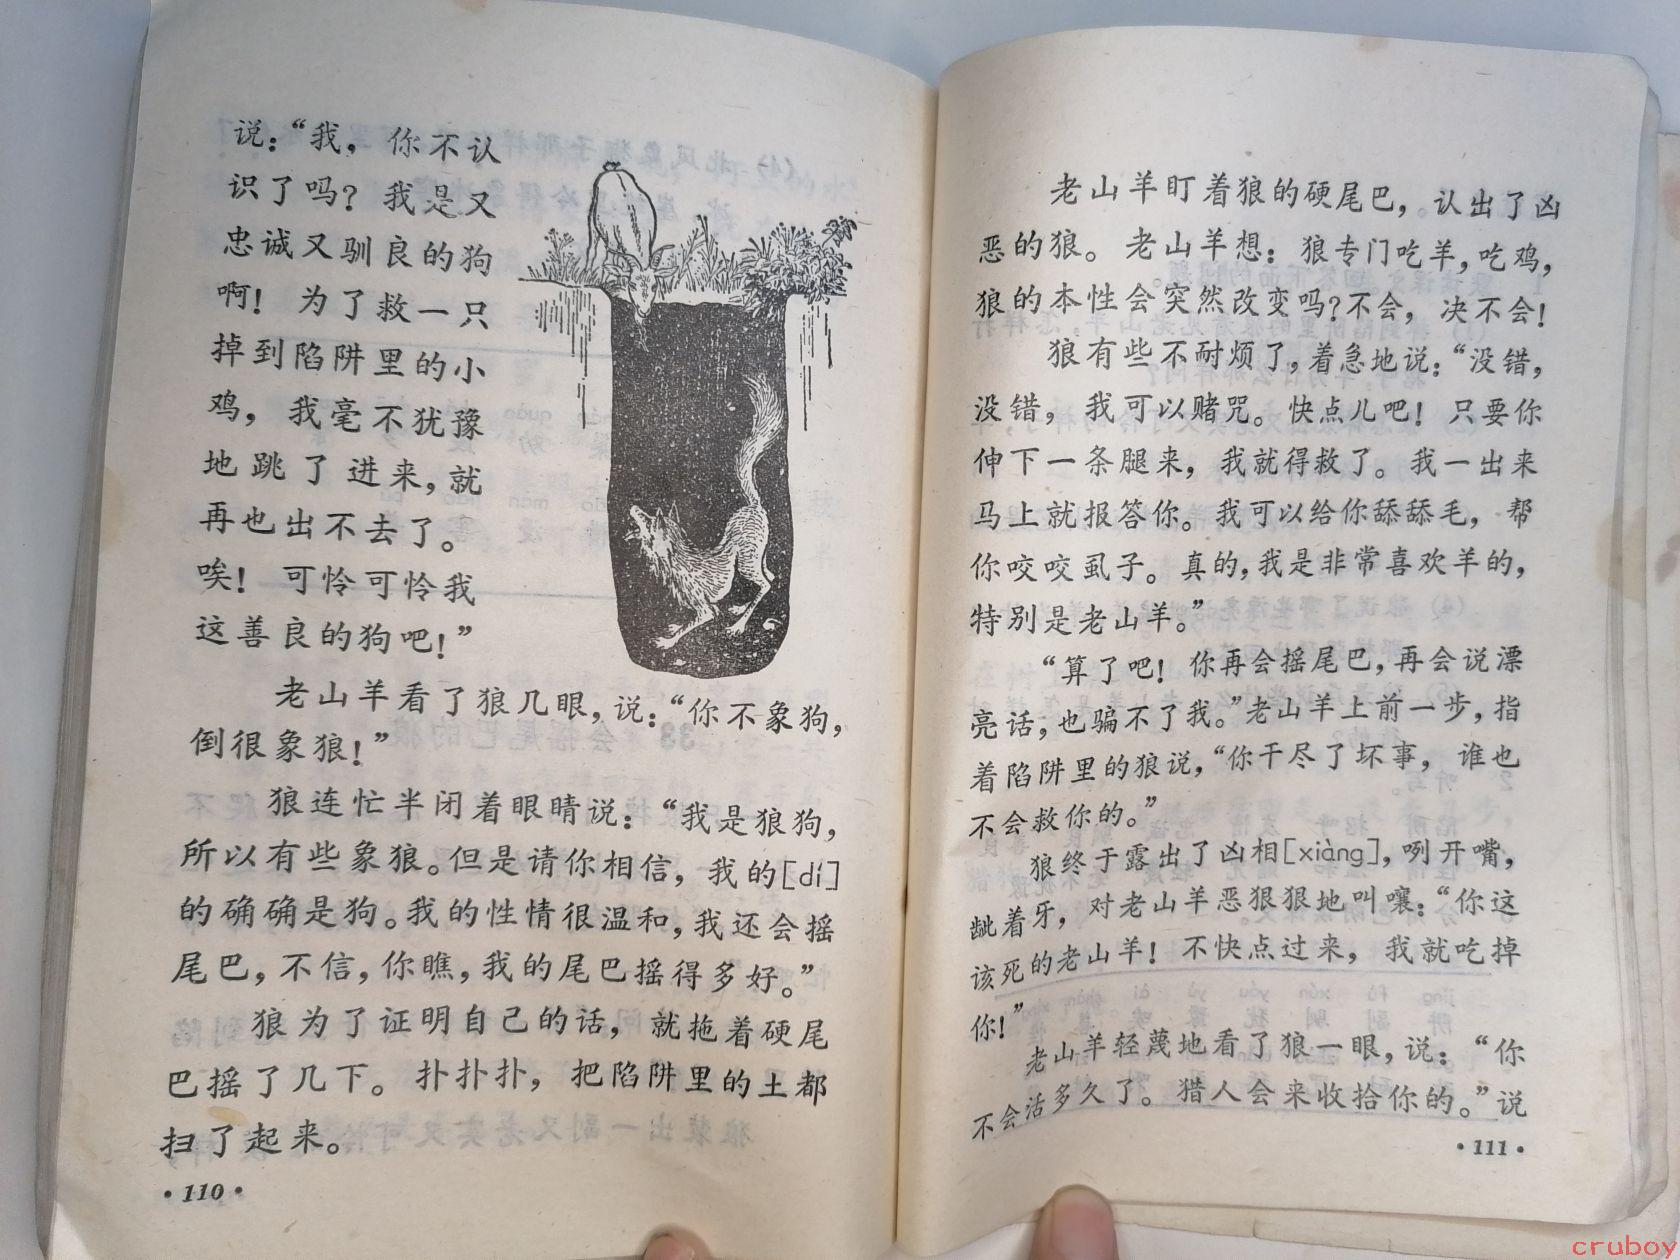 说：“我，你不认
识了吗？我是又
忠诚又驯良的狗
啊！为了救一只
掉到陷阱里的小
鸡，我毫不犹豫
地跳了进来，就
再也出不去了。
唉！可怜可怜我
这善良的狗吧！”
老山羊看了狼几眼，说：“你不象狗，
倒很象狼！”
狼连忙半闭着眼睛说：“我是狼狗，
所以有些象狼。但是请你相信，我的[dí]
的确确是狗。我的性情很温和，我还会摇
尾巴，不信，你瞧，我的尾巴摇得多好。”
狼为了证明自己的话，就拖着硬尾
巴摇了几下。扑扑扑，把陷阱里的土都
扫了起来。
·110·
老山羊盯着狼的硬尾巴，认出了凶
恶的狼。老山羊想：狼专门吃羊，吃鸡，
狼的本性会突然改变吗？不会，决不会！
狼有些不耐烦了，着急地说：“没错，
没错，我可以赌咒。快点儿吧！只要你
伸下一条腿来，我就得救了。我一出来
马上就报答你。我可以给你舔舔毛，帮
你咬咬虱子。真的，我是非常喜欢羊的，
特别是老山羊。”
“算了吧！你再会摇尾巴，再会说漂
亮话，也骗不了我。”老山羊上前一步，指
着陷阱里的狼说，“你干尽了坏事，谁也
不会救你的。”
狼终于露出了凶相[xiàng]，咧开嘴，
龇着牙，对老山羊恶狠狠地叫嚷：“你这
该死的老山羊！不快点过来，我就吃掉
你！”
老山羊轻蔑地看了狼一眼，说：“你
不会活多久了。猎人会来收拾你的。”说
·111·
cruboy